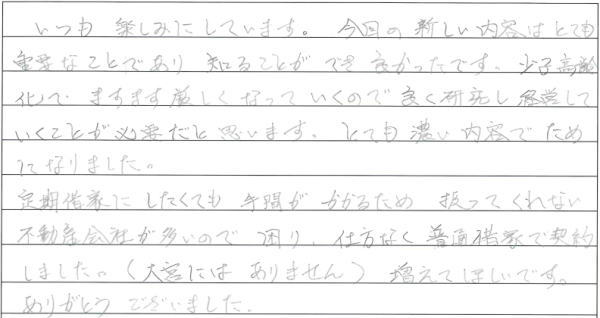 いつも 楽しみにしています。 今回の新しい内容はとても
重要なことであり 知ることができ 良かったです。少子高齢
化で ますます厳しくなって いくので 良く研究し 経営して
いくことが必要だと 思います。 とても 濃い内容で ため
になりました。
定期借家に したくても 手間が かかるため 扱ってくれない
不動産会社が多いので 困り、仕方なく 普通借家で契約
しました。(大宮には ありません) 増えてほしいです。
ありがとう ございました。